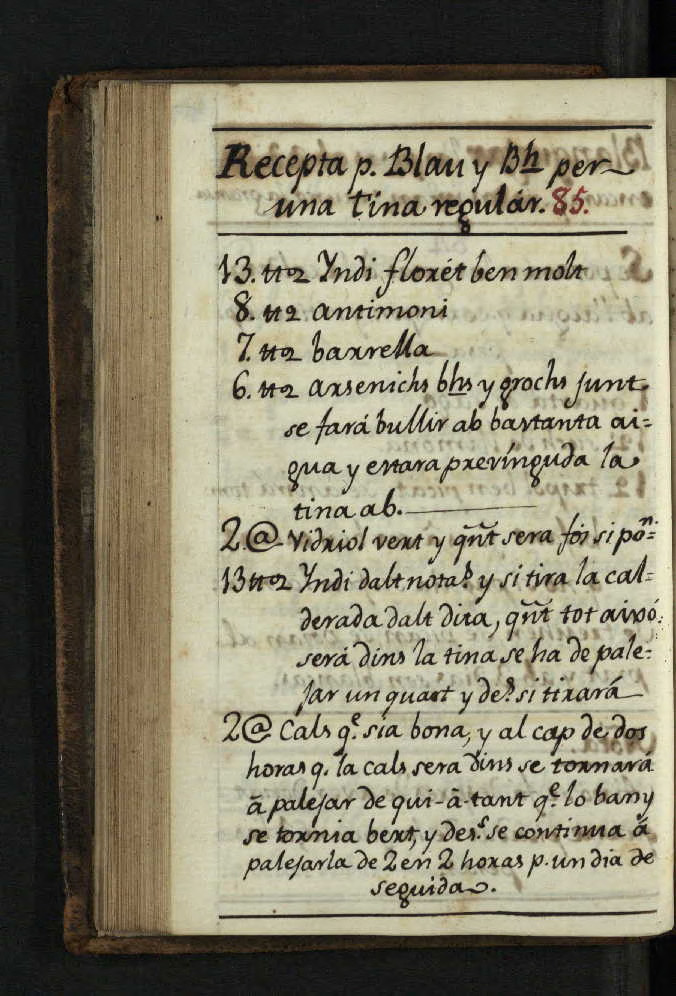 Recepta p. Blau y Bh per
una tina regulár. 85.
13. tt⁰² Yndi florét ben molt
8. tt⁰² antimoni
7. tt⁰² barrella
6. tt⁰² arsenichs bhs y grochs junt
se fará bullir ab bastanta ai=
gua y estara prevínguda la
tina ab.
2 @ Vidriol vert y qñt sera fós si poñ=
13 tt⁰² Yndi dalt nota? y si tira la cal=
derada dalt dita, qñt tot aixó
será dins la tina se ha de pale=
jar un quart y des? si tirará
2 @ Cals q.ᵉ sia bona, y al cap de dos
horas q. la cals sera dins se tornará
ā palejar de qui-ā-tant q.ᵉ lo bany
se tornia bert, y des.ˢ se continua ā
palejarla de 2 en 2 horas p. un dia de
seguida.